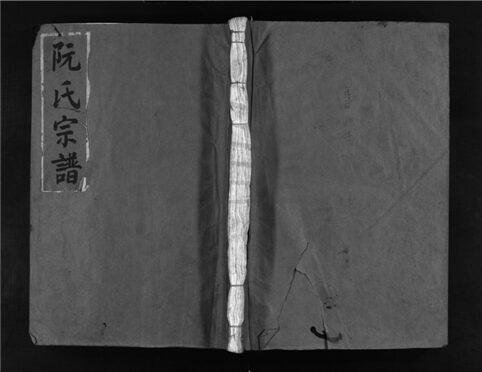 阮氏宗譜